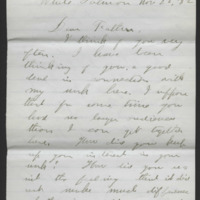 White Salmon Nov 30, '82
Dear Father,
I think of you very
often. I have been
thinking of you, a good
deal in connection with
my work here. I suppose
that for some time you
had no larger audiences
than I now get together
here. How did you keep
up your interest in your
work? How did you
the feeling that it did
not make much difference